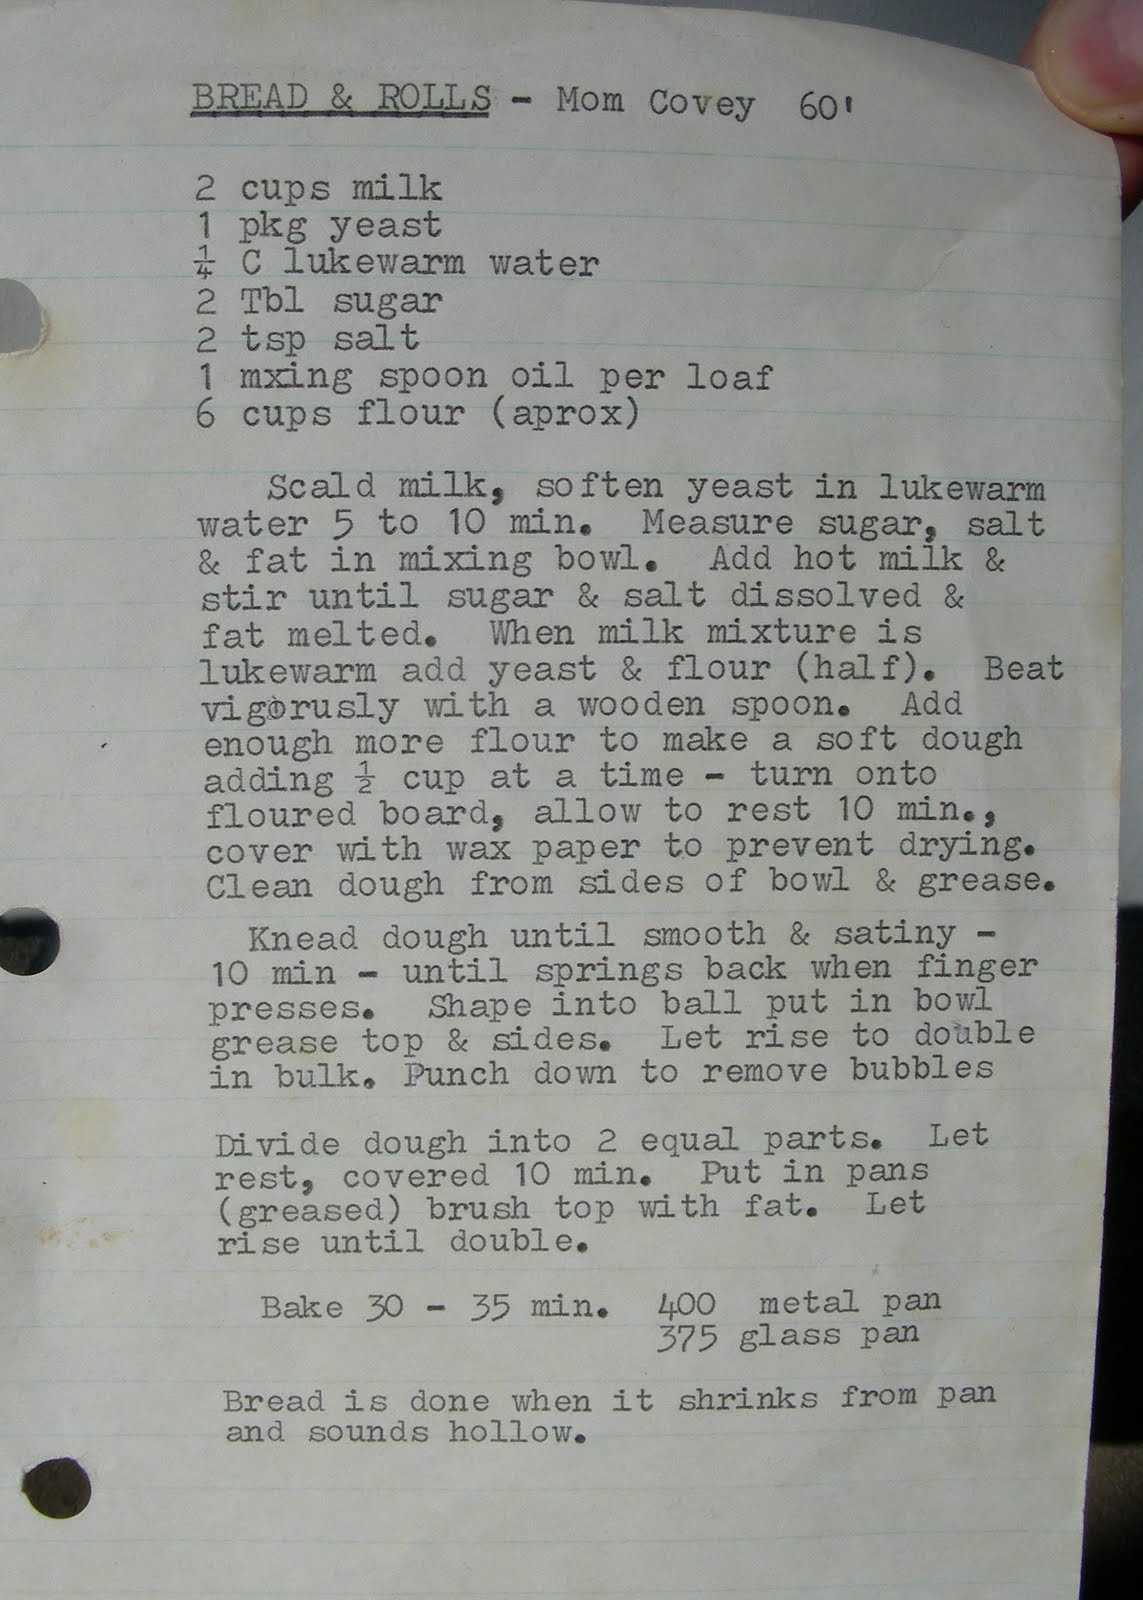 BREAD & ROLLS - Mom Covey 60'
2 cups milk
1 pkg yeast
¼ C lukewarm water
2 Tbl sugar
2 tsp salt
1 mxing spoon oil per loaf
6 cups flour (aprox)
Scald milk, soften yeast in lukewarm
water 5 to 10 min. Measure sugar, salt
& fat in mixing bowl. Add hot milk &
stir until sugar & salt dissolved &
fat melted. When milk mixture is
lukewarm add yeast & flour (half). Beat
vigorusly with a wooden spoon. Add
enough more flour to make a soft dough
adding ½ cup at a time - turn onto
floured board, allow to rest 10 min.,
cover with wax paper to prevent drying.
Clean dough from sides of bowl & grease.
Knead dough until smooth & satiny -
10 min - until springs back when finger
presses. Shape into ball put in bowl
grease top & sides. Let rise to double
in bulk. Punch down to remove bubbles
Divide dough into 2 equal parts. Let
rest, covered 10 min. Put in pans
(greased) brush top with fat. Let
rise until double.
Bake 30 - 35 min. 400 metal pan
375 glass pan
Bread is done when it shrinks from pan
and sounds hollow.